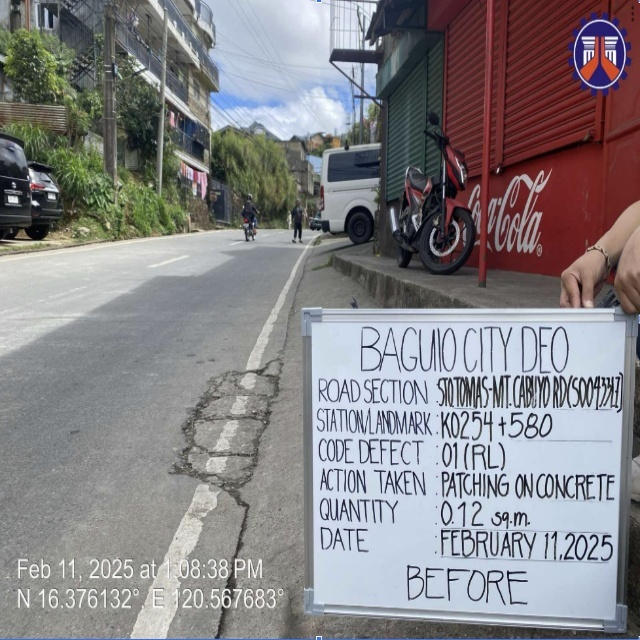 Coca-Cola
BAGUIO CITY DEO
ROAD SECTION STO TOMAS-MT. CABUYO RD (S00433LZ)
STATION/LANDMARK : K0254+580
CODE DEFECT : 01 (RL)
ACTION TAKEN : PATCHING ON CONCRETE
QUANTITY : 0.12 sq.m.
DATE : FEBRUARY 11, 2025
BEFORE
Feb 11, 2025 at 1:08:38 PM
N 16.376132°, E 120.567683°